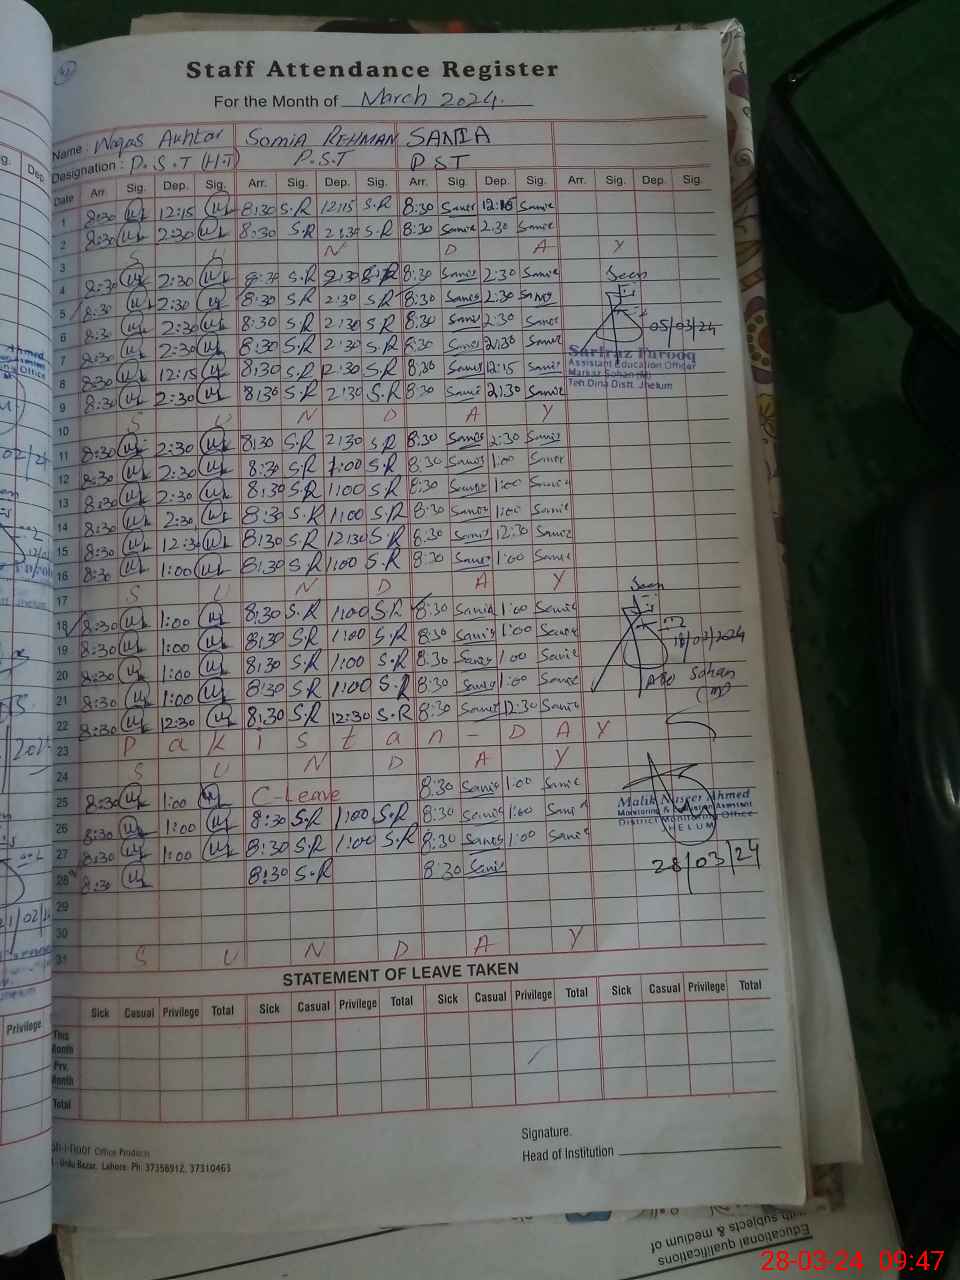 Staff Attendance Register
For the Month of March 2024.
Name : Waqas Akhtar Somia REHMAN SANIA
Designation : P.S.T (H.T) P.S.T PST
Date Arr. Sig. Dep. Sig. Arr. Sig. Dep. Sig. Arr. Sig. Dep. Sig. Arr. Sig. Dep. Sig.
1 8:30 12:15 8:30 S.R 12:15 S.R 8:30 Sania 12:15 Sania
2 8:30 2:30 8:30 S.R 2:30 S.R 8:30 Sania 2:30 Sania
3 S U N D A Y
4 8:30 2:30 8:30 S.R 2:30 S.R 8:30 Sania 2:30 Sania Seen
5 8:30 2:30 8:30 S.R 2:30 S.R 8:30 Sania 2:30 Sania
6 8:30 2:30 8:30 S.R 2:30 S.R 8:30 Sania 2:30 Sania 05/03/24
7 8:30 2:30 8:30 S.R 2:30 S.R 8:30 Sania 2:30 Sania Sarfraz Farooq
Assistant Education Officer
8 8:30 12:15 8:30 S.R 2:30 S.R 8:30 Sania 12:15 Sania Markaz Sohan (M)
Teh.Dina Distt. Jhelum
9 8:30 2:30 8:30 S.R 2:30 S.R 8:30 Sania 2:30 Sania
10 S U N D A Y
11 8:30 2:30 8:30 S.R 2:30 S.R 8:30 Sania 2:30 Sania
12 8:30 2:30 8:30 S.R 1:00 S.R 8:30 Sania 1:00 Sania
13 8:30 2:30 8:30 S.R 1:00 S.R 8:30 Sania 1:00 Sania
14 8:30 2:30 8:30 S.R 1:00 S.R 8:30 Sania 1:00 Sania
15 8:30 12:30 8:30 S.R 12:30 S.R 8:30 Sania 12:30 Sania
16 8:30 1:00 8:30 S.R 1:00 S.R 8:30 Sania 1:00 Sania
17 S U N D A Y Seen
18 8:30 1:00 8:30 S.R 1:00 S.R 8:30 Sania 1:00 Sania
19 8:30 1:00 8:30 S.R 1:00 S.R 8:30 Sania 1:00 Sania 18/03/2024
20 8:30 1:00 8:30 S.R 1:00 S.R 8:30 Sania 1:00 Sania AEO Sohan
21 8:30 1:00 8:30 S.R 1:00 S.R 8:30 Sania 1:00 Sania (M)
22 8:30 12:30 8:30 S.R 12:30 S.R 8:30 Sania 12:30 Sania
23 P a k i s t a n - D A Y
24 S U N D A Y
25 8:30 1:00 C-Leave 8:30 Sania 1:00 Sania Malik Naseer Ahmed
Monitoring & Assistant
26 8:30 1:00 8:30 S.R 1:00 S.R 8:30 Sania 1:00 Sania District Monitoring Office
JHELUM
27 8:30 1:00 8:30 S.R 1:00 S.R 8:30 Sania 1:00 Sania
28 8:30 8:30 S.R 8:30 Sania 28/03/24
29
30
31 S U N D A Y
STATEMENT OF LEAVE TAKEN
Sick Casual Privilege Total Sick Casual Privilege Total Sick Casual Privilege Total Sick Casual Privilege Total
This Month
Prv. Month
Total
Signature.
Head of Institution
Office Products
Urdu Bazar, Lahore. Ph: 37356912, 37310463
Dep.
Privilege
Educational qualifications
with subjects & medium of
28-03-24 09:47